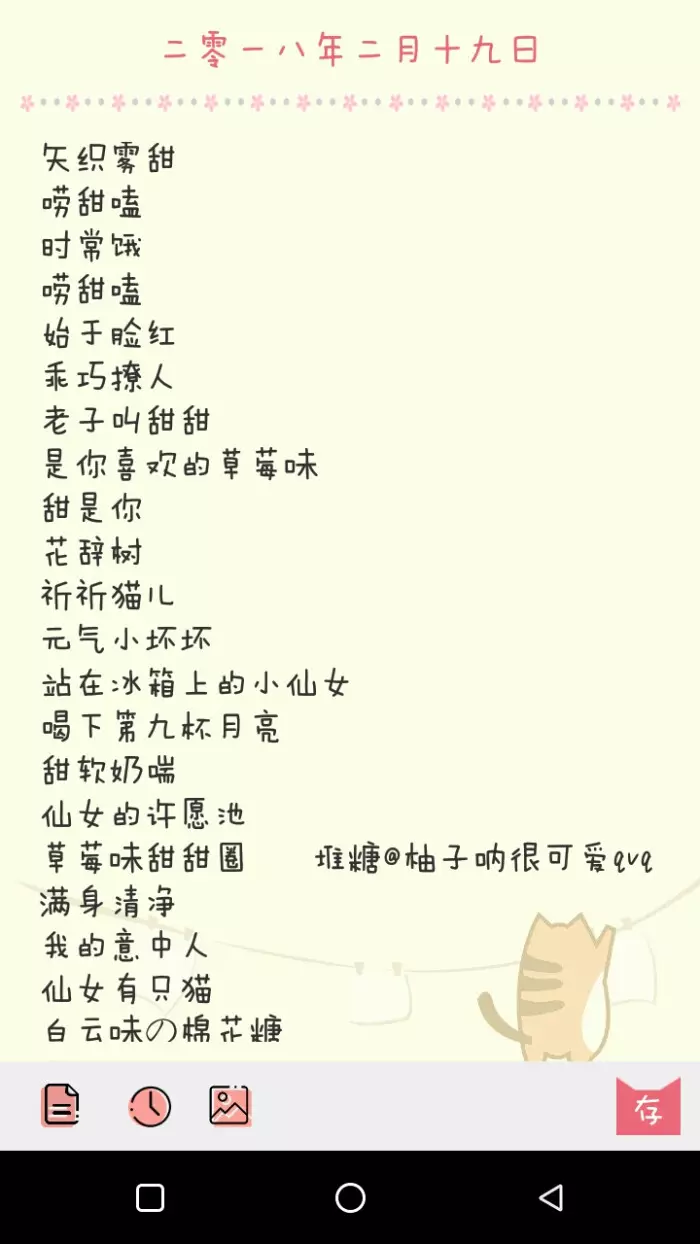 二零一八年二月十九日
矢织雾甜
唠甜嗑
时常饿
唠甜嗑
始于脸红
乖巧撩人
老子叫甜甜
是你喜欢的草莓味
甜是你
花辞树
祈祈猫儿
元气小坏坏
站在冰箱上的小仙女
喝下第九杯月亮
甜软奶喘
仙女的许愿池
草莓味甜甜圈 堆糖@柚子呐很可爱qvq
满身清净
我的意中人
仙女有只猫
白云味の棉花糖
存